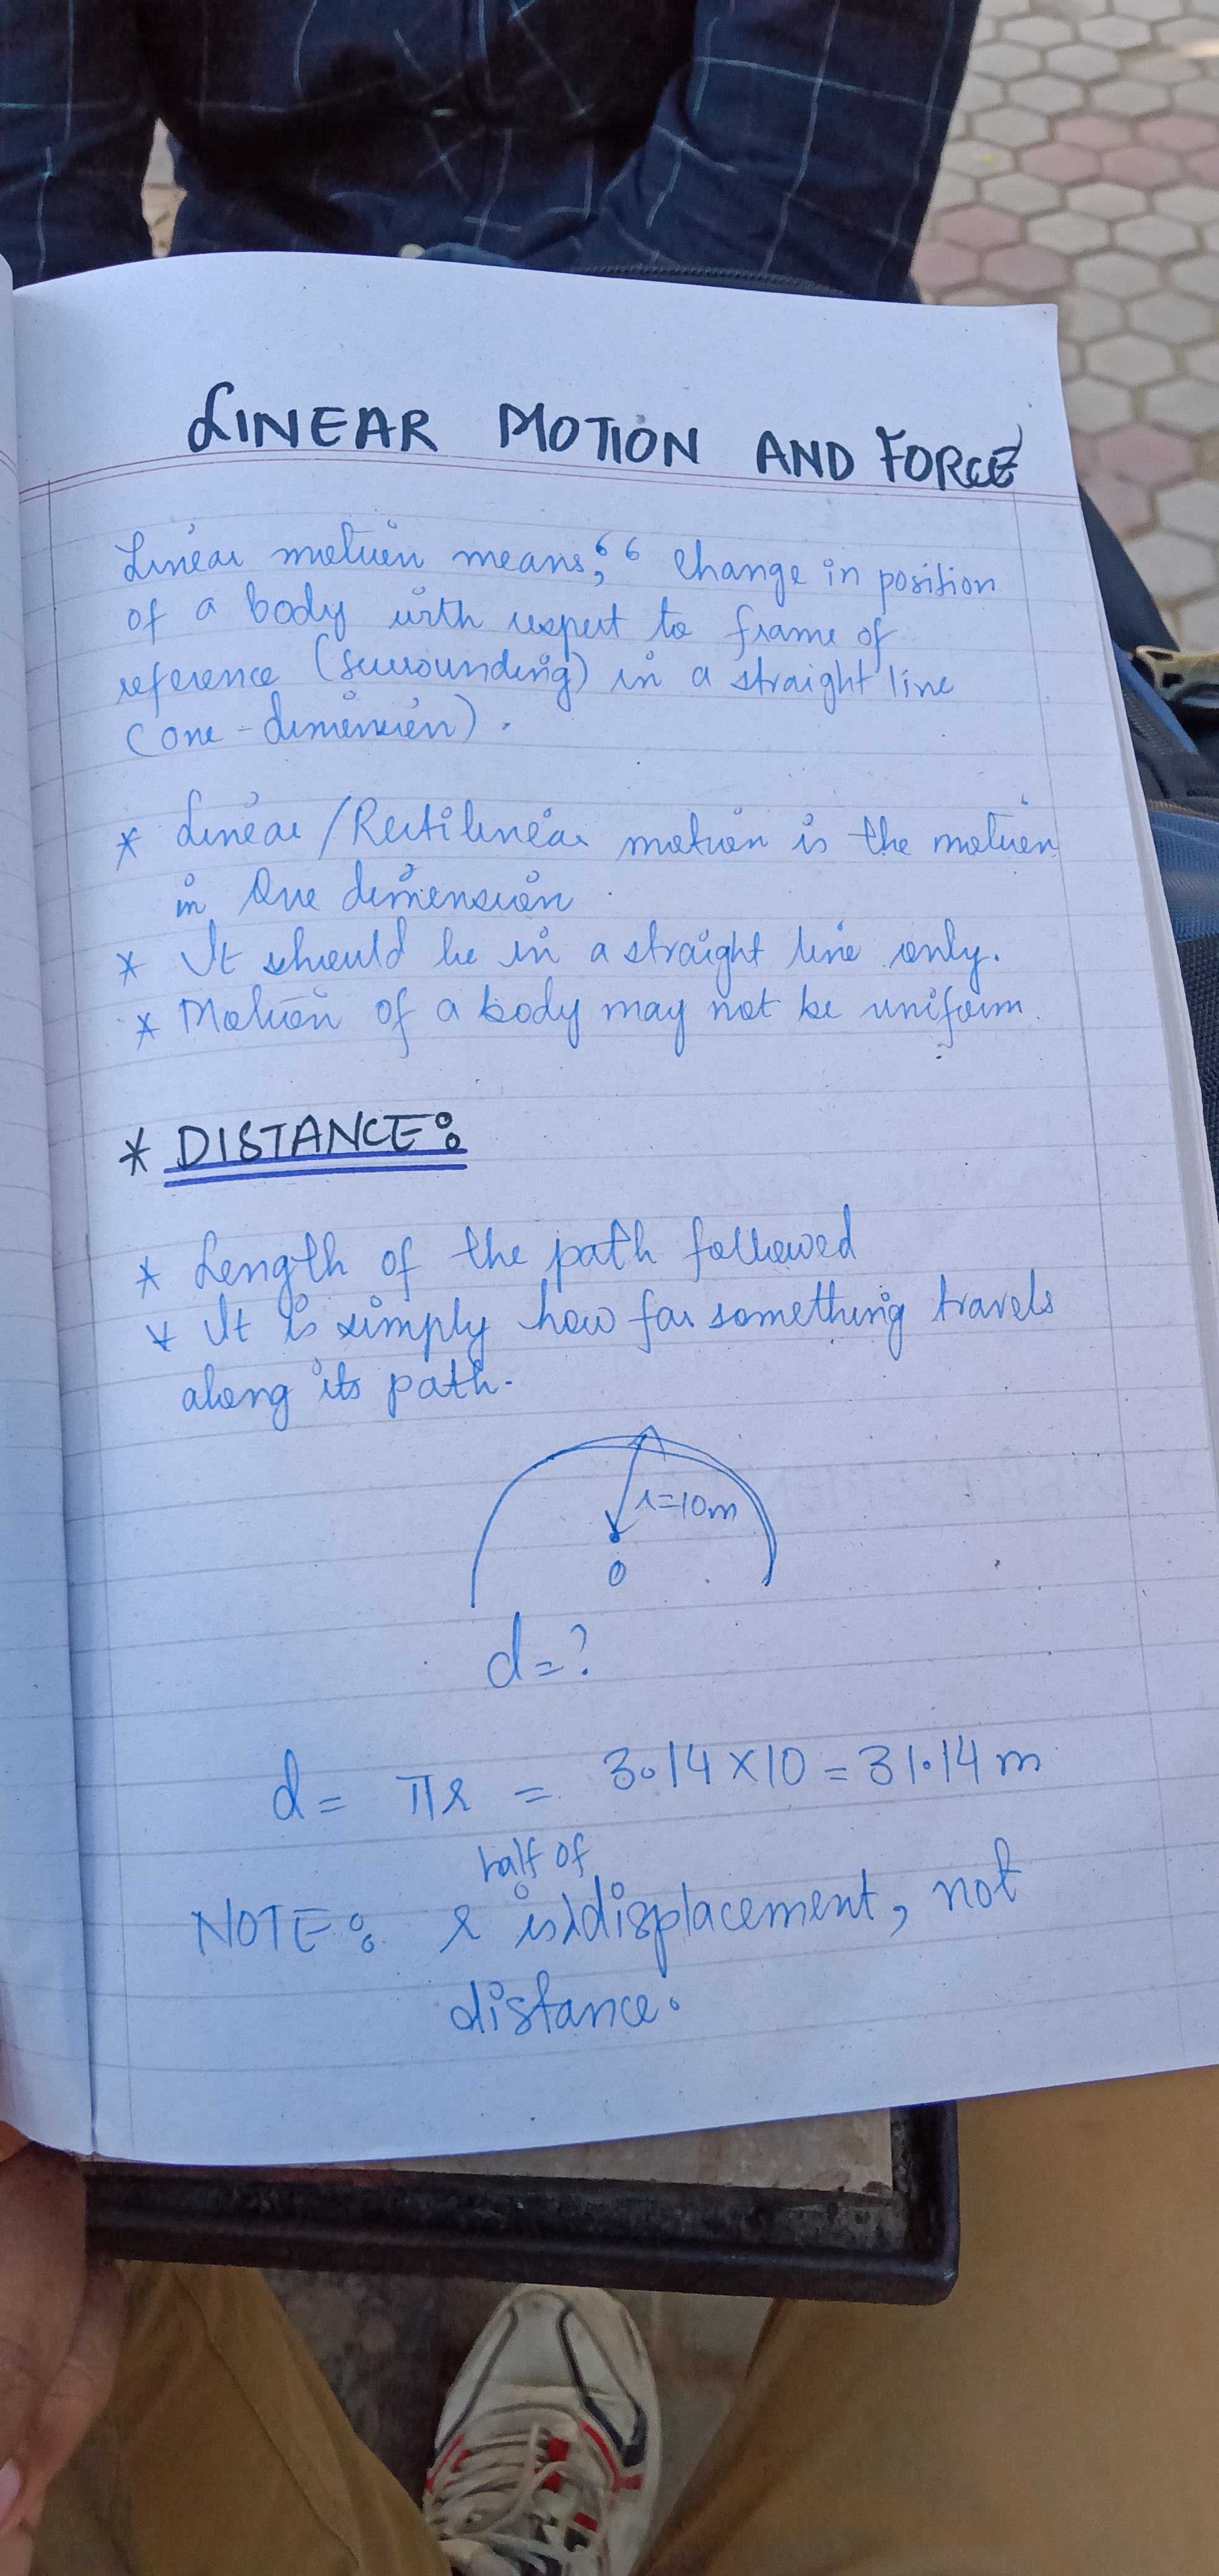 LINEAR MOTION AND FORCE
Linear motion means, “ Change in position
of a body with respect to frame of
reference (surrounding) in a straight line
(one-dimension).
* Linear/Rectilinear motion is the motion
in One dimension
* It should be in a straight line only.
* Motion of a body may not be uniform.
* DISTANCE:
* Length of the path followed
* It is simply how far something travels
along its path.
r=10m
O
d=?
d = πr = 3.14×10 = 31.14 m
half of
NOTE: r is displacement, not
distance.